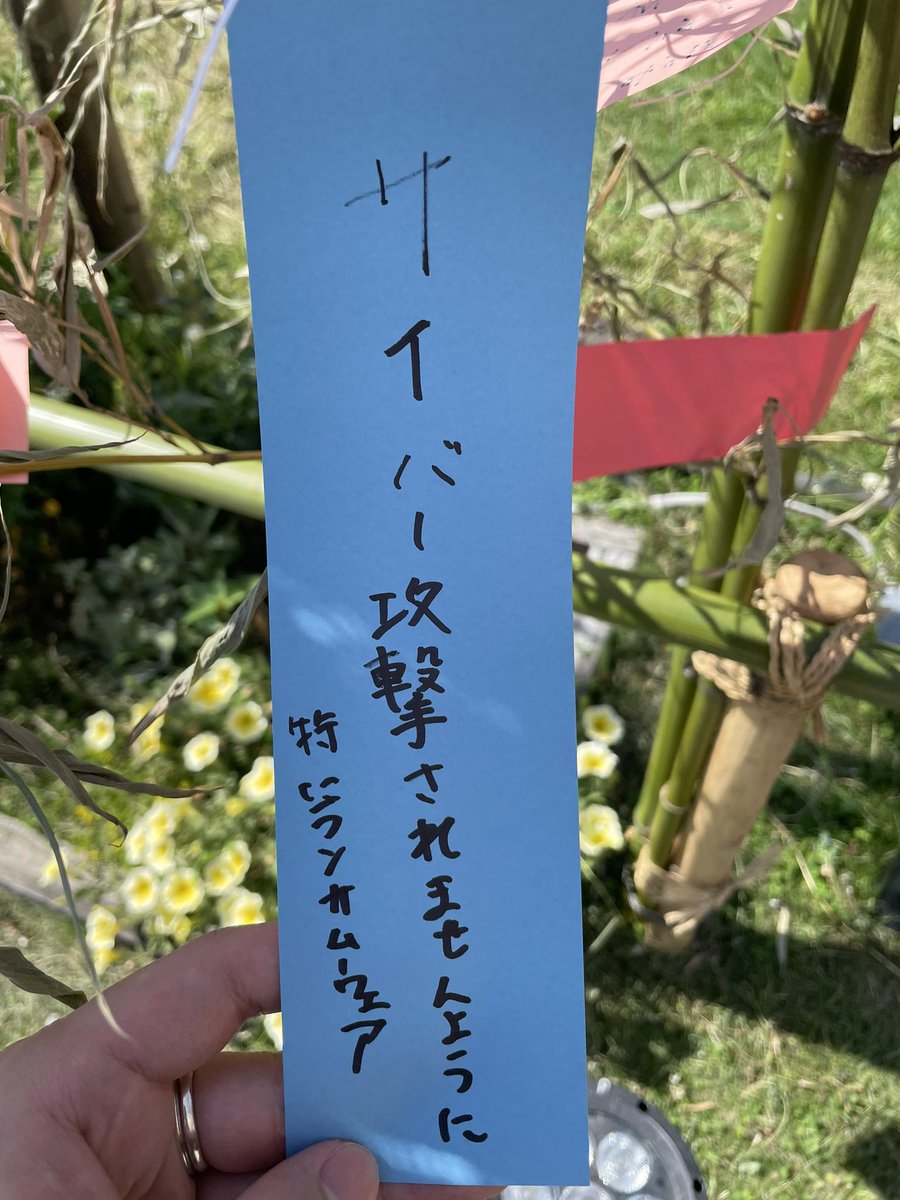 サイバー攻撃されませんように
特にランサムウェア